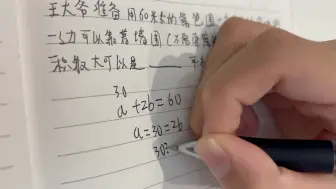 王大爷准备用60米长的篱笆围
一边可以靠着墙围(不
积最大可以是____平
30
a+2b=60
a=30=2b
30